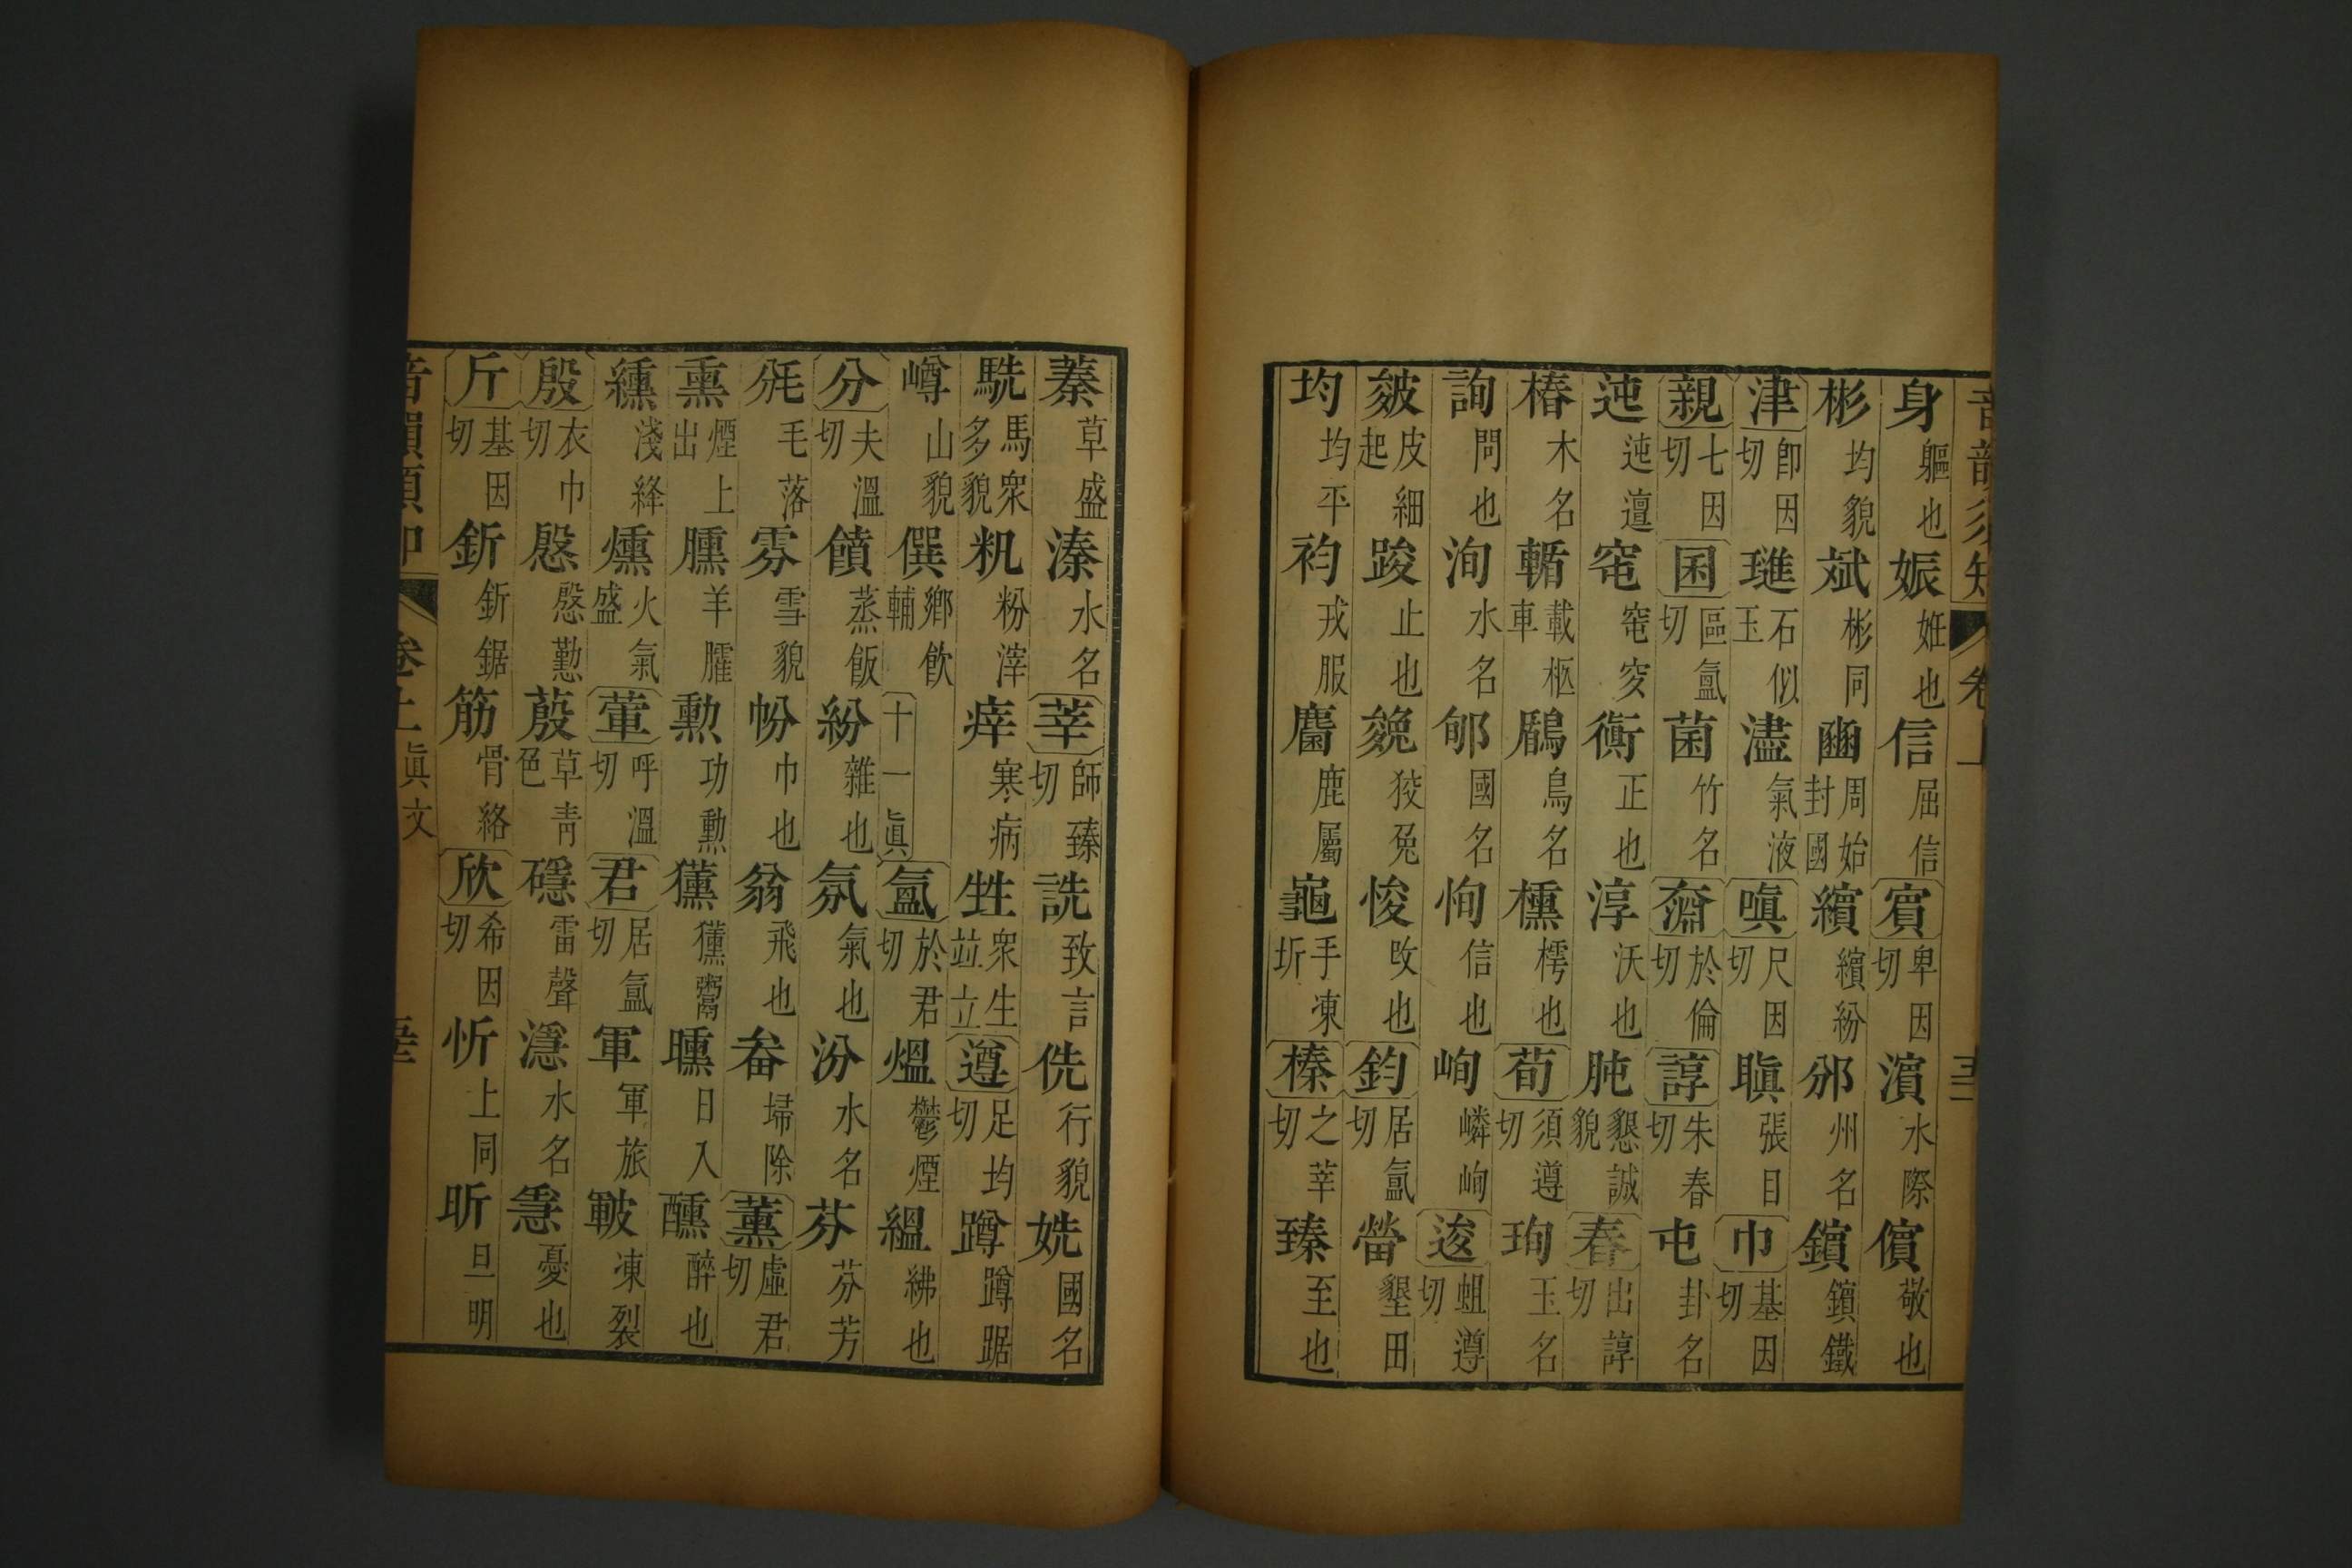 音韻須知 卷上 五十
身軀也娠妊也信屈信賓卑因切濵水際儐敬也
彬均貌斌彬同豳周始封國繽繽紛邠州名鑌鑌鐵
津卽因切璡石似玉濜氣液嗔尺因切瞋張目巾基因切
親七因切囷區氲切菌竹名奫於倫切諄朱春切屯卦名
迍迍邅窀窀穸衠正也淳沃也肫懇誠貌春出諄切
椿木名輴載柩車鶞鳥名櫄樗也荀須遵切珣玉名
詢問也洵水名郇國名恂信也峋嶙峋逡蛆遵切
皴皮細起踆止也㕙狡兔悛改也鈞居氲切畇墾田
均均平袀戎服麕鹿屬龜手凍坼榛之莘切臻至也
蓁草盛溱水名莘師臻切詵致言侁行貌姺國名
駪馬衆多貌籸粉滓㾕寒病甡衆生竝立遵足均切蹲蹲踞
嶟山貌僎鄉飲輔十一眞氲於君切熅鬱煙縕紼也
分夫溫切饙蒸飯紛雜也氛氣也汾水名芬芬芳
毤毛落雰雪貌帉巾也翁飛也畚埽除薰虛君切
熏煙上出臐羊臛勳功勳獯獯鬻曛日入醺醉也
纁淺絳燻火氣盛葷呼溫切君居氲切軍軍旅皸凍裂
殷衣巾切慇慇勤蒑草靑色磤雷聲濦水名㥯憂也
斤基因切釿釿鋸筋骨絡欣希因切忻上同昕旦明
音韻須知 卷上 眞文